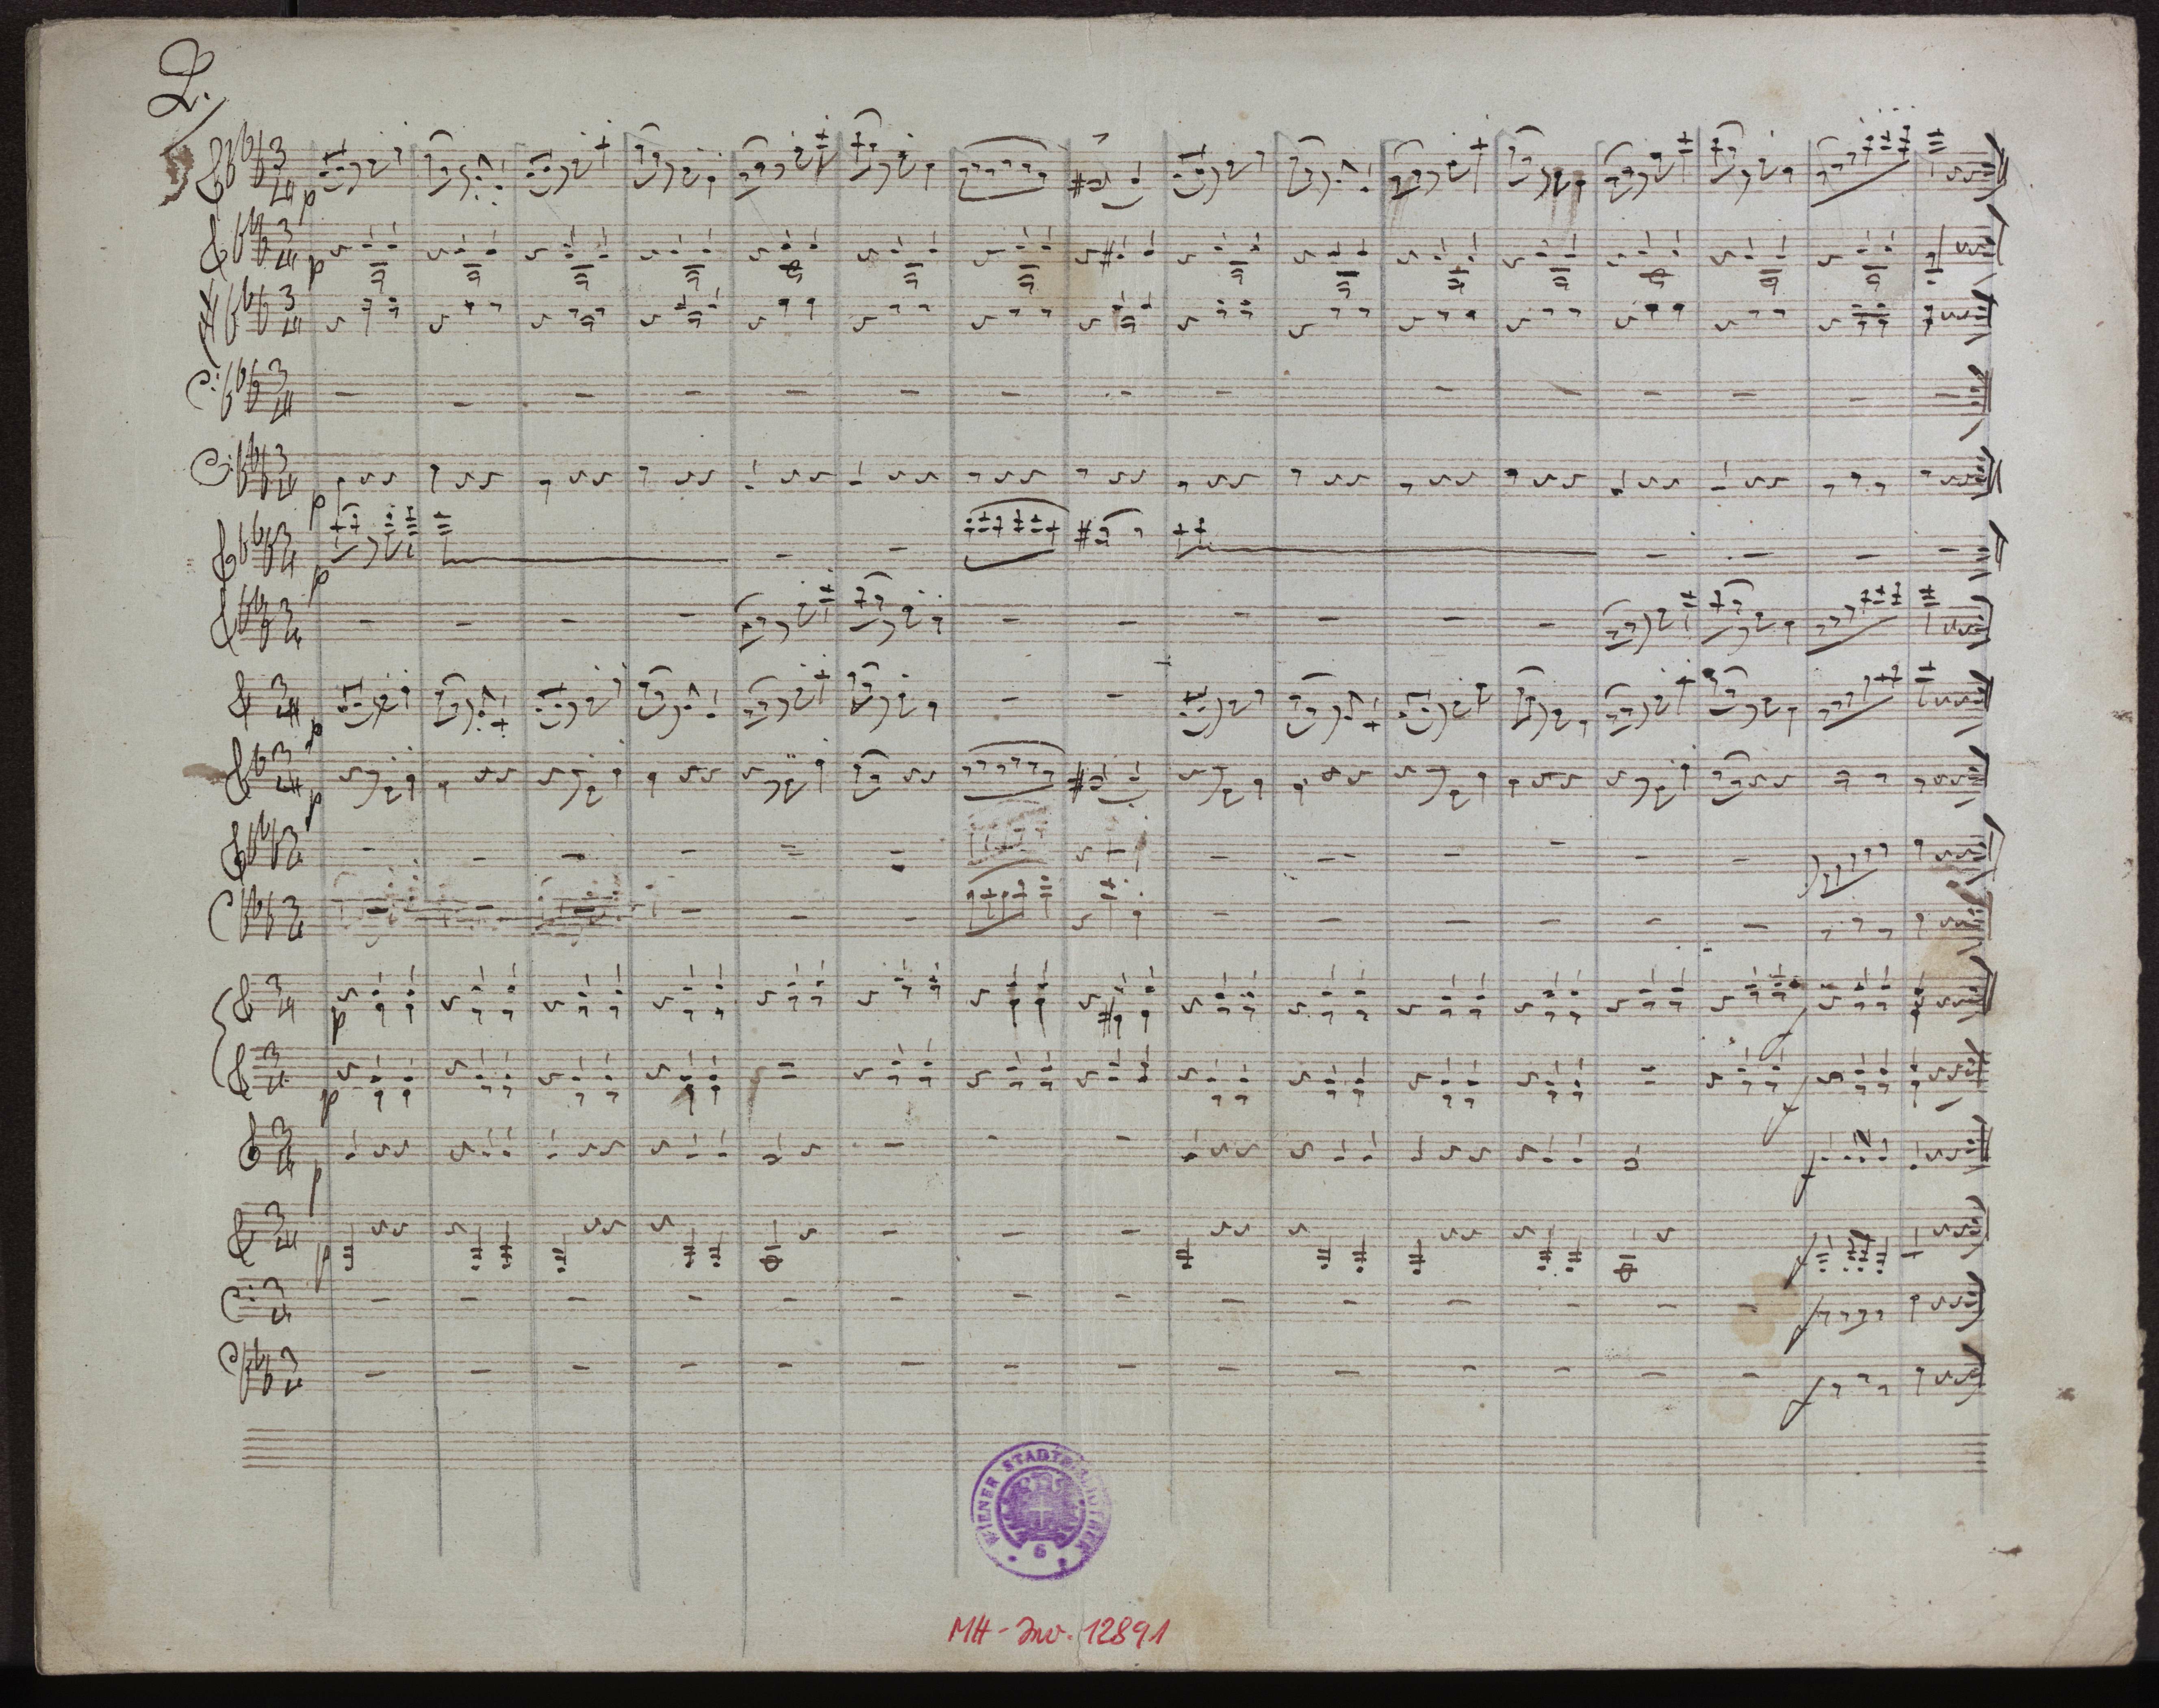 2.
p
p
p
p
p
p
p
p
f
f
p
f
p
f
f
f
WIENER STADTBIBLIOTHEK
6
MH-Inv. 12891